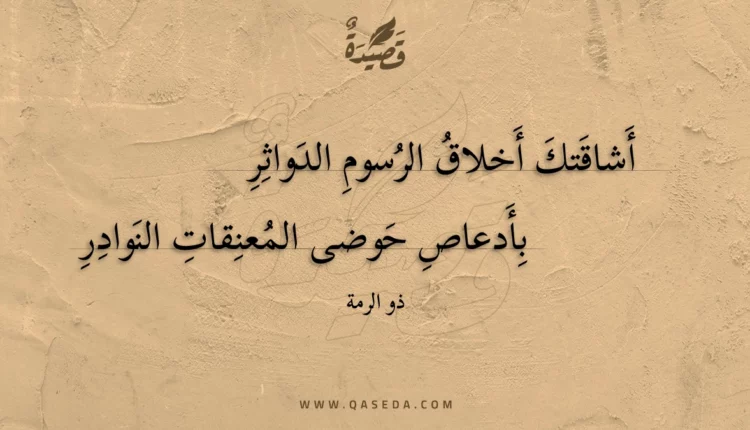 قَصِيدَةٌ
أَشاقَتكَ أَخلاقُ الرُسومِ الدَواثِرِ
بِأَدعاصِ حَوضى المُعنِقاتِ النَوادِرِ
ذو الرمة
WWW.QASEDA.COM